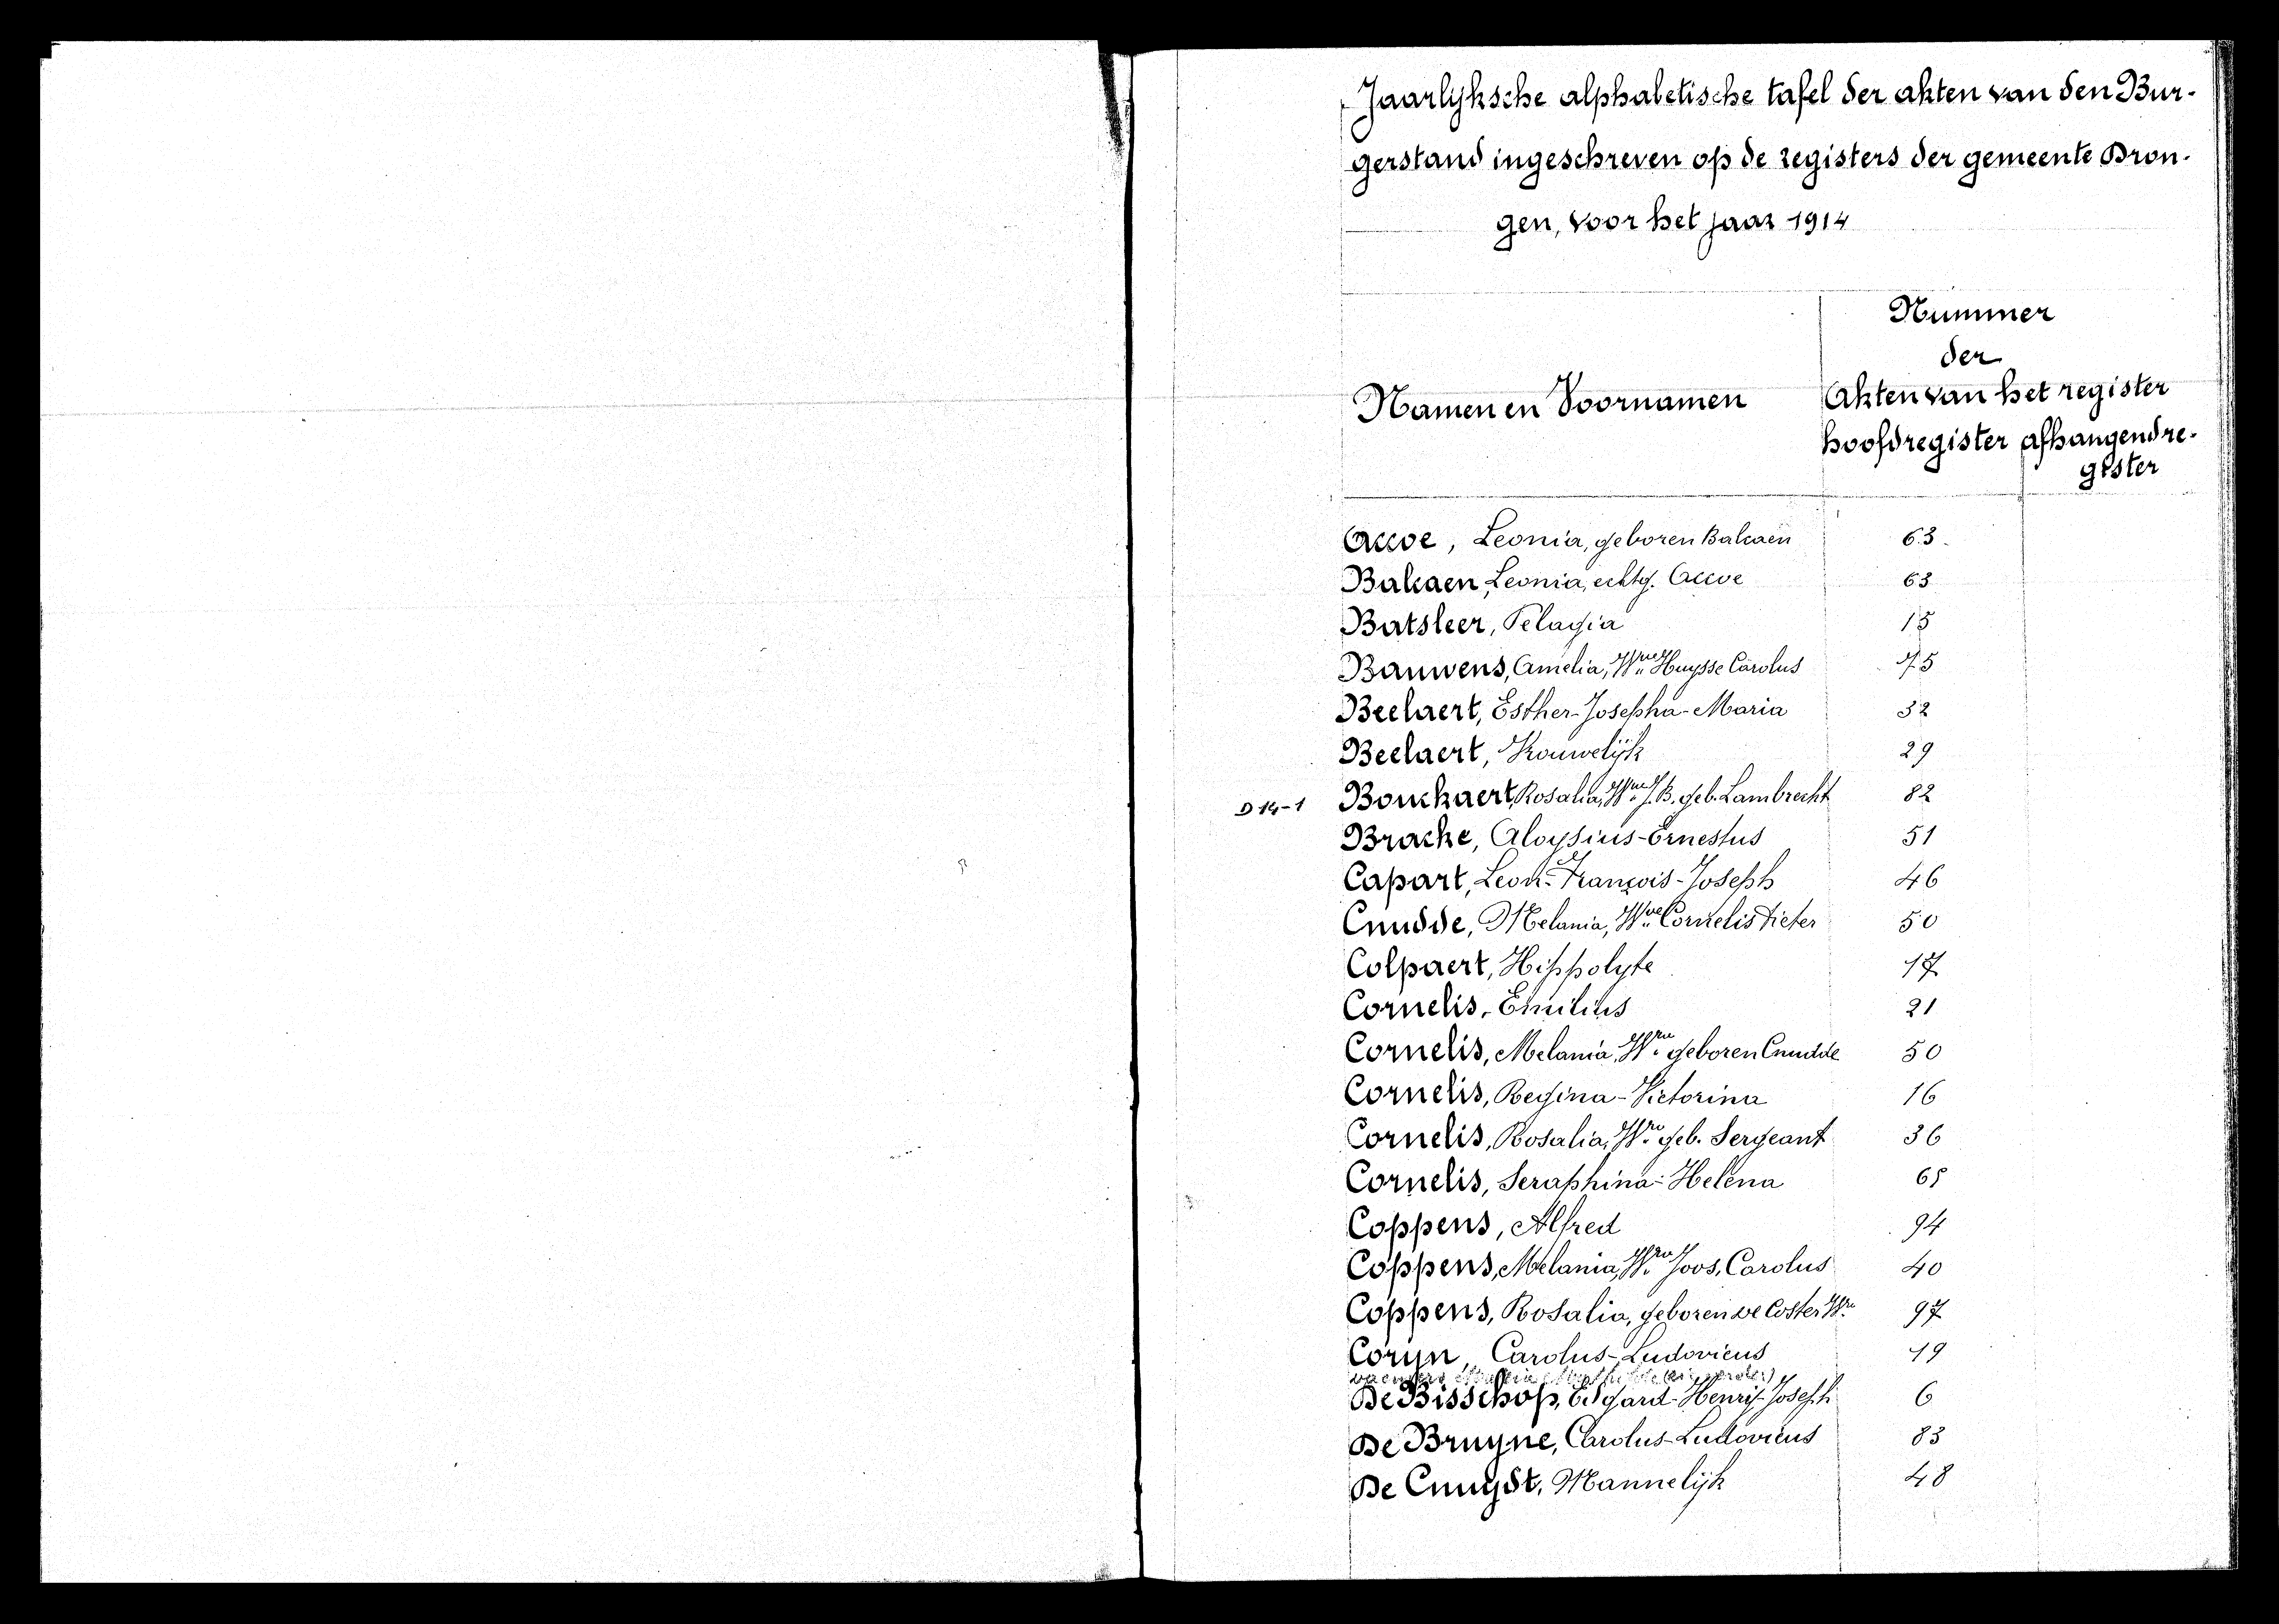 Jaarlijksche alphabetische tafel der akten van den Bur-
gerstand ingeschreven op de registers der gemeente Dron-
gen, voor het jaar 1914
Nummer
der
Namen en Voornamen Akten van het register
hoofdregister afhangend re-
gister
Accoe, Leonia, geboren Balcaen 63
Balcaen, Leonia, echtg. Accoe 63
Batsleer, Pelagia 15
Bauwens, Amelia, Wwe Huysse Carolus 75
Beelaert, Esther-Josepha-Maria 32
Beelaert, Vrouwelijk 29
D 14-1 Bouckaert, Rosalia, Wwe J.B. geb. Lambrecht 82
Bracke, Aloysius-Ernestus 51
Capart, Leon-François-Joseph 46
Cnudde, Melania, Wwe Cornelis Pieter 50
Colpaert, Hippolyte 17
Cornelis, Emilius 21
Cornelis, Melania, Wwe geboren Cnudde 50
Cornelis, Regina-Victorina 16
Cornelis, Rosalia, Wwe geb. Sergeant 36
Cornelis, Seraphina-Helena 65
Coppens, Alfred 94
Coppens, Melania, Wwe Joos, Carolus 40
Coppens, Rosalia, geboren De Coster Wwe 97
Coryn, Carolus-Ludovicus 19
De Bisschop, Edgard-Henri-Joseph 6
De Bruyne, Carolus-Ludovicus 83
De Cnuydt, Mannelijk 48